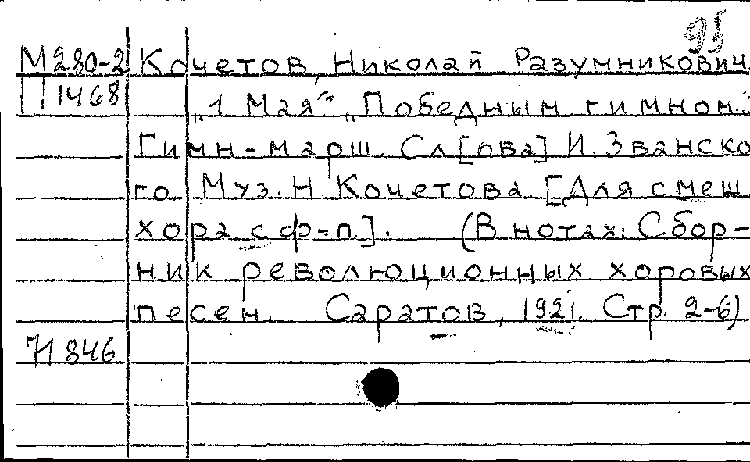 95
М280-2 Кочетов, Николай Разумникович
П 1468 „1 Мая" „Победным гимном."
Гимн-марш. Сл[ова] И. Званско
го Муз. Н Кочетова [Для смеш
хора с ф-п.]. (В нотах: Сбор-
ник революционных хоровых
песен. Саратов, 1921. Стр. 2-6)
71846